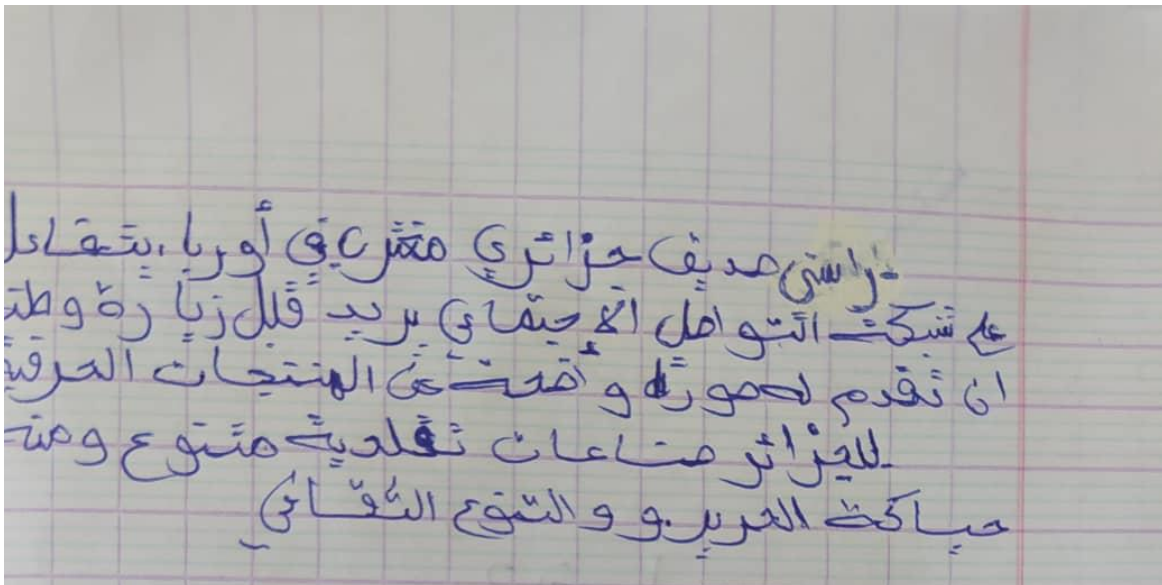 راسني صديق جزائري مغترب في أوربا، يتفاعل
على شبكت التواصل الاجتماعي يريد قبل زيارة وطنه
ان تقدم له صورة واضحت عن المنتجات الحرفية
للجزائر صناعات تقلدية متنوع ومنه
حياكت الحرير و والتنوع الثقافي